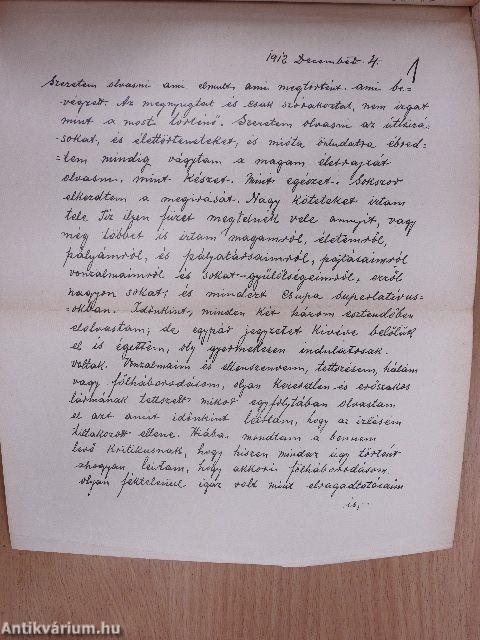 1912 December 4.
1
Szeretem olvasni ami elmult, ami megtörtént. ami be-
végzett. Az megnyugtat és csak szórakoztat, nem izgat
mint a most történő. Szeretem olvasni az útleirá-
sokat, és élettörténeteket, és mióta öntudatra ébred-
=tem mindig vágytam a magam életrajzát
elvasni. mint készet. Mint egészet. Sokszor
elkezdtem a megirását. Nagy köteteket irtam
tele Tiz ilyen füzet megtelnék vele annyit, vagy
még többet is irtam magamról, életemről,
pályámról, és pályatársaimról, pajtásaimról
vonzalmaimról és sokat gyülölségeimről, ezről
nagyon sokat, és mindezt csupa superlativus-
=okban. Időnkint, minden két három esztendőben
elolvastam, de egypár jegyzetet kivéve belőlük
el is égettem, oly gyermekesen indulatosak
voltak. Vonzalmaim és ellenszenvem, tetszésem, hálám
vagy fölháborodásom, olyan kezesetlen és erőszakos
lármának tetszett mikor egyfolytában olvastam
el azt amit időnkint leírtam, hogy az izlésem
tiltakozott ellene. Hiába mondtam a bennem
levő kritikusnak, hogy hiszen mindaz úgy történt
ahogyan leírtam, hogy akkori fölháborodásom
olyan féktelenül igaz volt mint elragadtatásaim
is,-
Antikvárium.hu